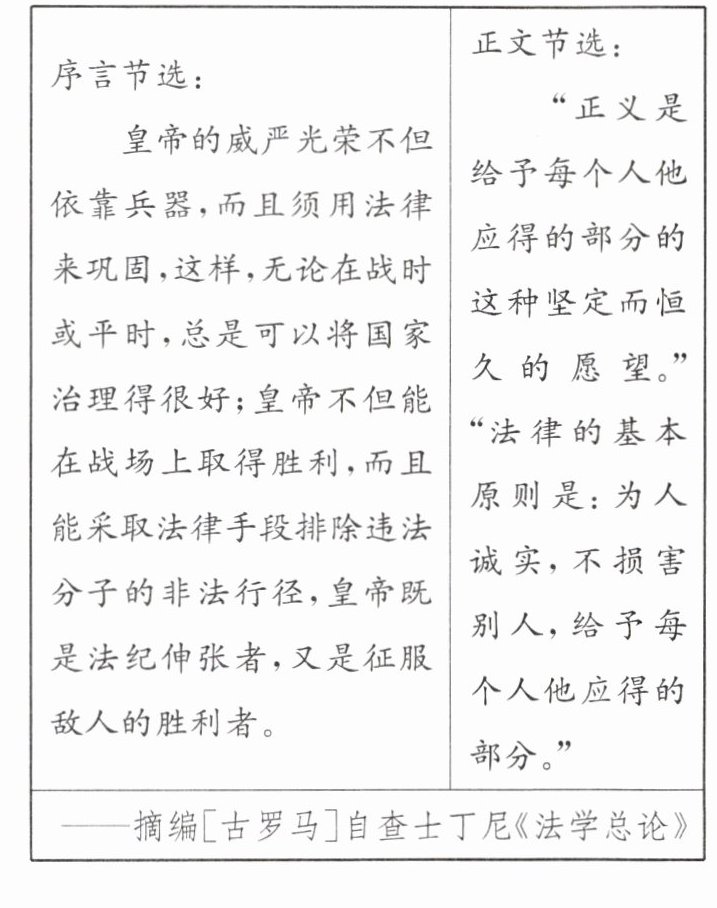 序言节选：
皇帝的威严光荣不但
依靠兵器,而且须用法律
来巩固,这样,无论在战时
或平时,总是可以将国家
治理得很好;皇帝不但能
在战场上取得胜利,而且
能采取法律手段排除违法
分子的非法行径,皇帝既
是法纪伸张者,又是征服
敌人的胜利者。
正文节选：
“正义是
给予每个人他
应得的部分的
这种坚定而恒
久的愿望。”
“法律的基本
原则是：为人
诚实,不损害
别人,给予每
个人他应得的
部分。”
——摘编[古罗马]自查士丁尼《法学总论》